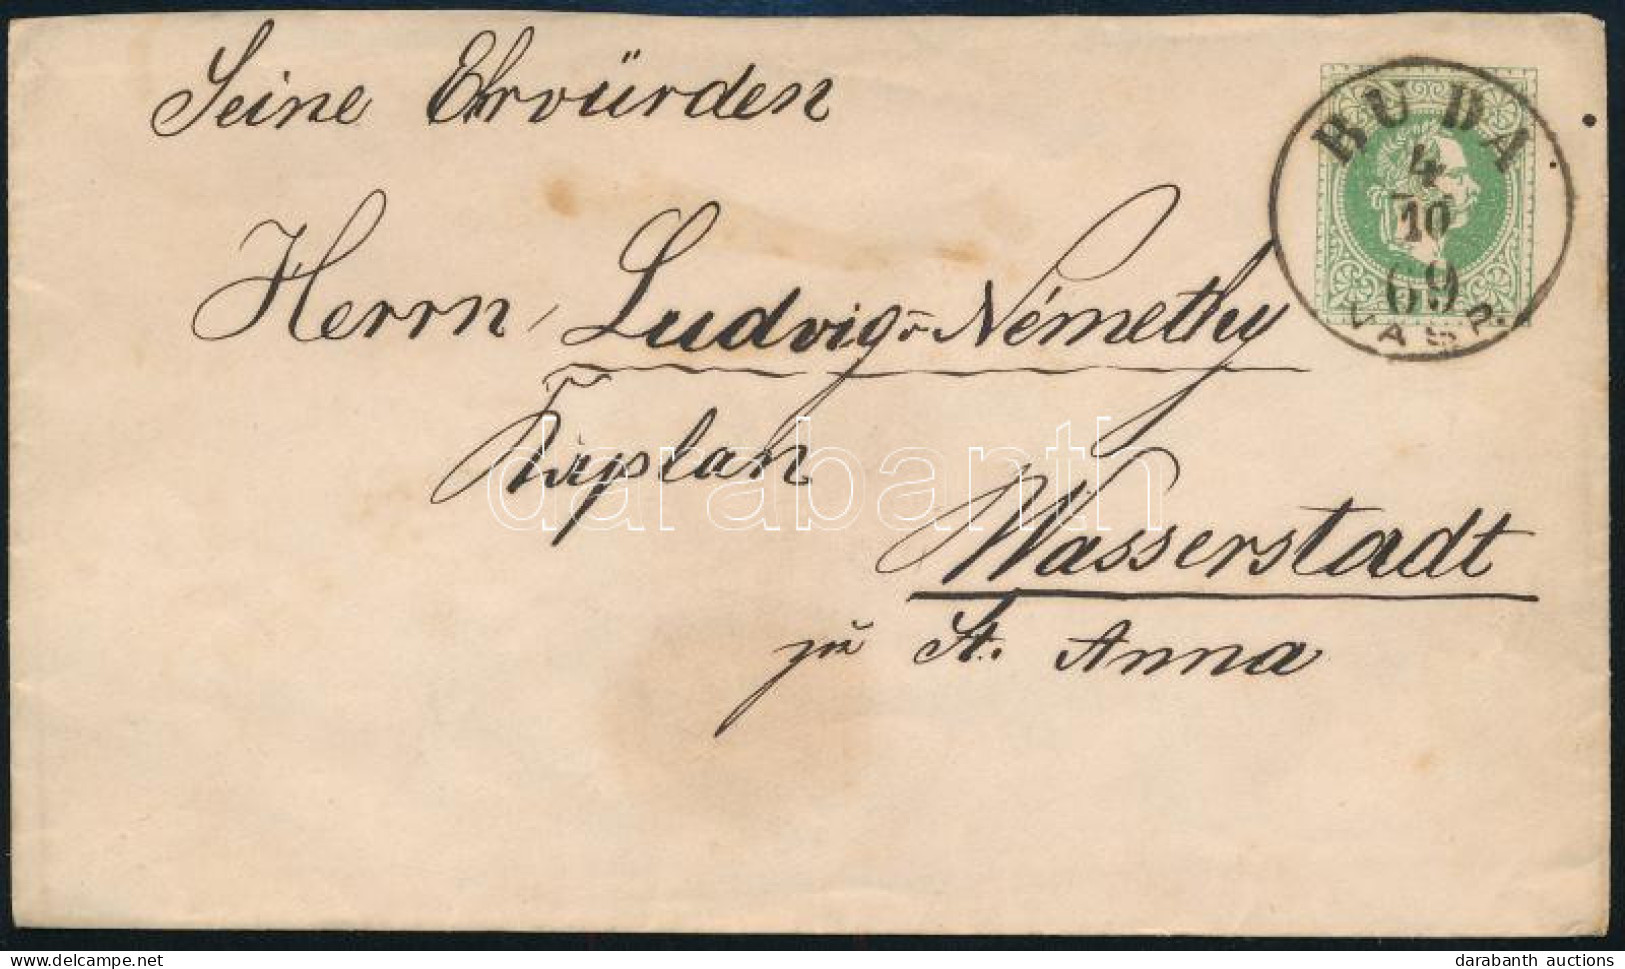 Seine Ehrvürden
Herrn Ludvig v Némethy
Kaplan
Wasserstadt
zu St. Anna
BUDA
4
10
69
VASP.
darabanth
delcampe.net
darabanth auctions